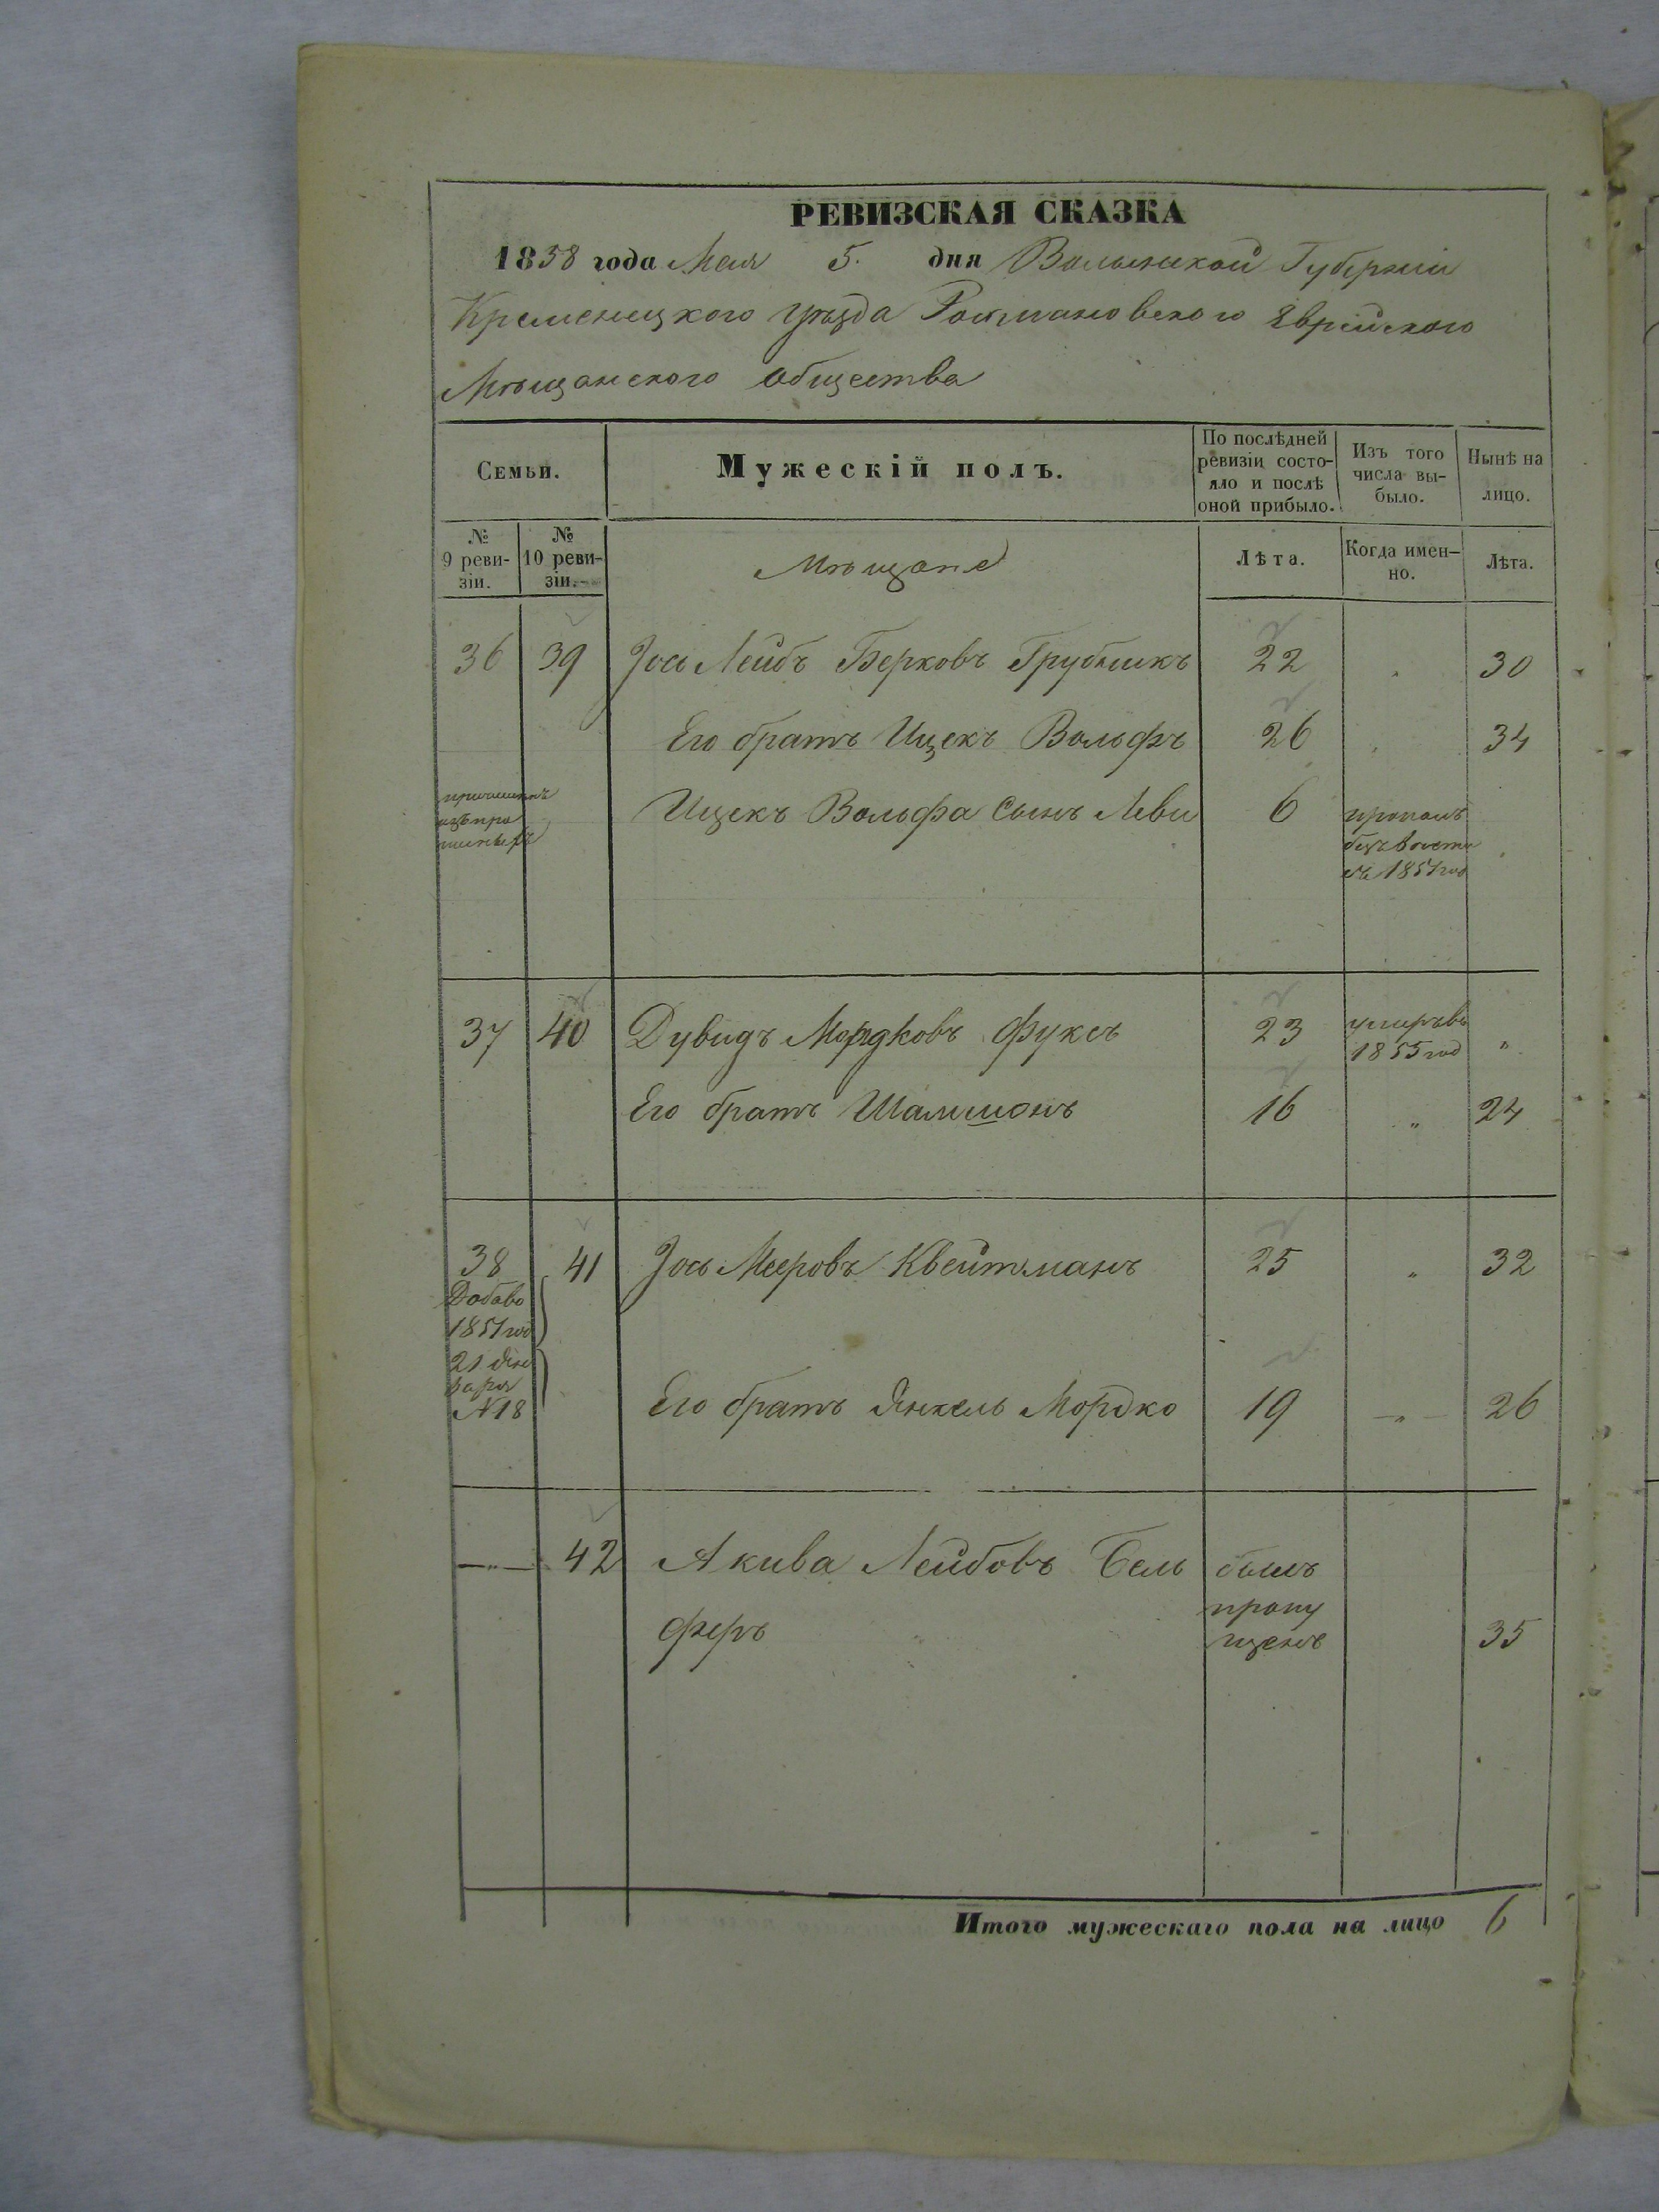 РЕВИЗСКАЯ СКАЗКА
1858 года Мая 5. дня Волынской Губерніи
Кременецкого уѣзда Рохмановского Еврейского
Мѣщанского общества
Семьи.
Мужескій полъ.
По послѣдней ревизіи состояло и послѣ оной прибыло.
Изъ того числа выбыло.
Нынѣ на лицо.
№ 9 ревизіи.
№ 10 ревизіи.
Мѣщане
Лѣта.
Когда именно.
Лѣта.
36 39 Іось Лейбъ Берковъ Грубникъ 22 „ 30
Его братъ Ицекъ Вольфъ 26 „ 34
Ицекъ Вольфа сынъ Леви 6
пропалъ
безъ вѣсти
съ 1851 год
37 40 Дувидъ Мордковъ Фуксъ 23 умеръ въ
1855 год „
Его братъ Шамшонъ 16 „ 24
38 41 Іось Мееровъ Квейтманъ 25 „ 32
Добаво
1851 год
21 Ян
варя
N 18
Его братъ Янкель Мордко 19 „ 26
„ 42 Акива Лейбовъ Бель
феръ
былъ
пропу
щенъ
35
Итого мужескаго пола на лицо 6